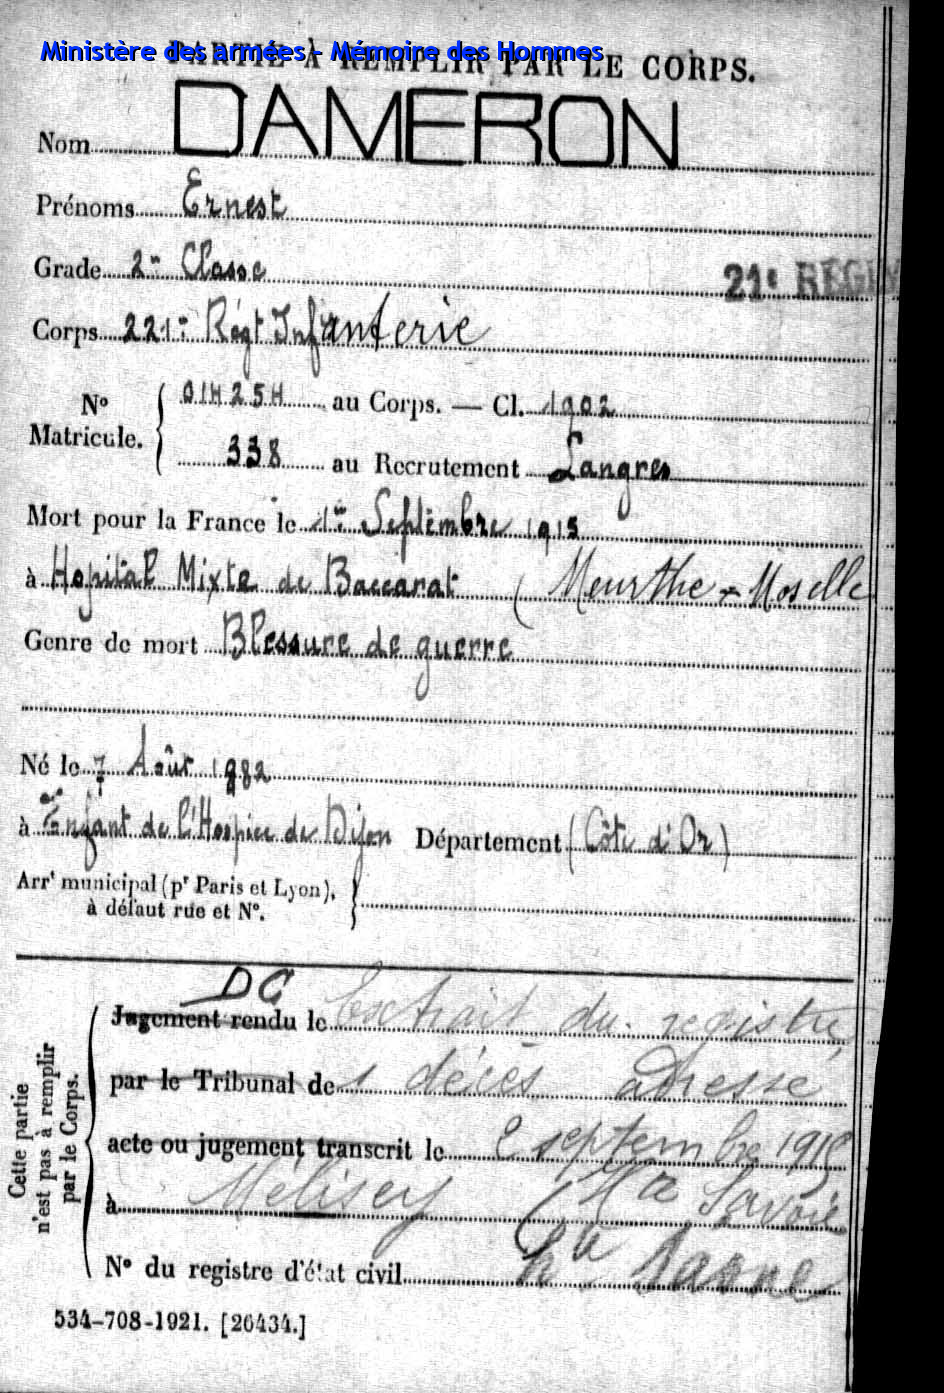 Ministère des armées - Mémoire des Hommes
PARTIE À REMPLIR PAR LE CORPS.
Nom DAMERON
Prénoms Ernest
Grade 2e Classe
21e REGI
Corps 221e Régt Infanterie
No Matricule. 01425H au Corps. — Cl. 1902
338 au Recrutement Langres
Mort pour la France le 1er Septembre 1915
à Hopital Mixte de Baccarat (Meurthe - Moselle
Genre de mort Blessure de guerre
Né le 7 Août 1882
à Enfant de l'Hospice de Dijon Département (Côte d'Or)
Arrt municipal (pr Paris et Lyon),
à défaut rue et No.
DC
Jugement rendu le Extrait du registre
par le Tribunal de décès adresse
acte ou jugement transcrit le 2 septembre 1915
à Mélisey (Hte Savoie
Hte Saone
No du registre d'état civil
Cette partie
n'est pas à remplir
par le Corps.
534-708-1921. [26434.]